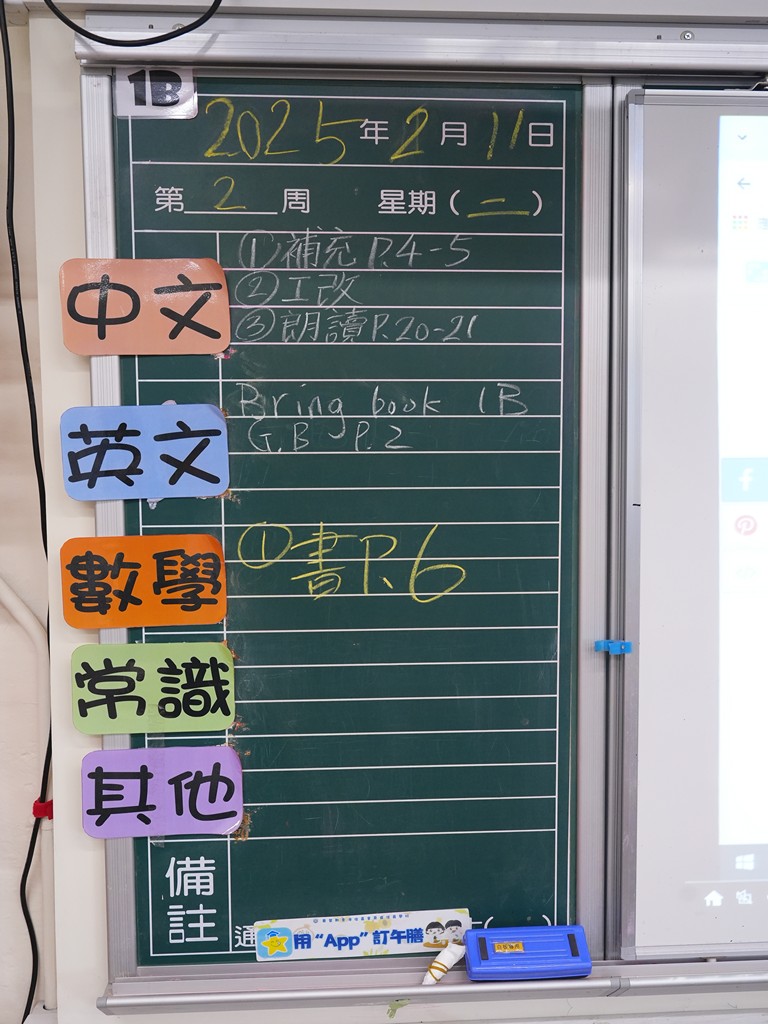 1B
2025年2月11日
第2周 星期(二)
中文
①補充 P.4-5
②工改
③朗讀P.20-21
英文
Bring book 1B
G.B P.2
數學
①書P.6
常識
其他
備註
通
用“App”訂午膳